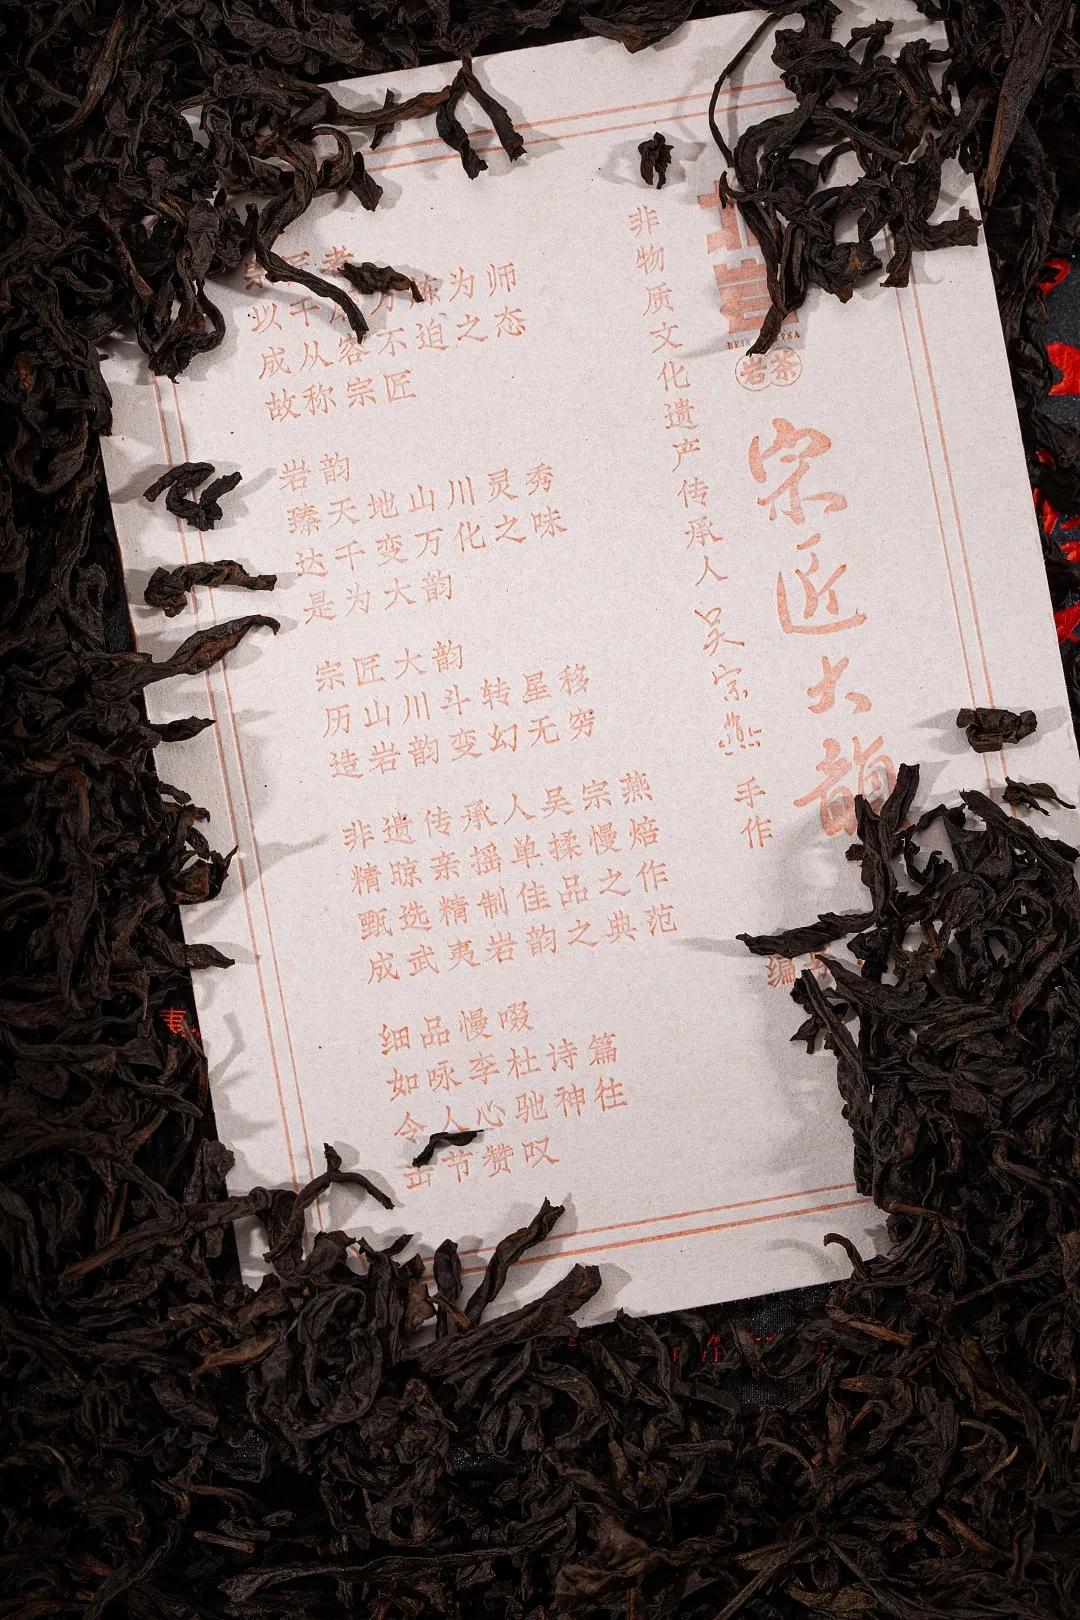 北岩
岩茶
宗匠大韵
非物质文化遗产传承人 吴宗燕 手作
编号
宗匠者
以千磨万炼为师
成从容不迫之态
故称宗匠
岩韵
臻天地山川灵秀
达千变万化之味
是为大韵
宗匠大韵
历山川斗转星移
造岩韵变幻无穷
非遗传承人吴宗燕
精晾亲摇单揉慢焙
甄选精制佳品之作
成武夷岩韵之典范
细品慢啜
如咏李杜诗篇
令人心驰神往
击节赞叹